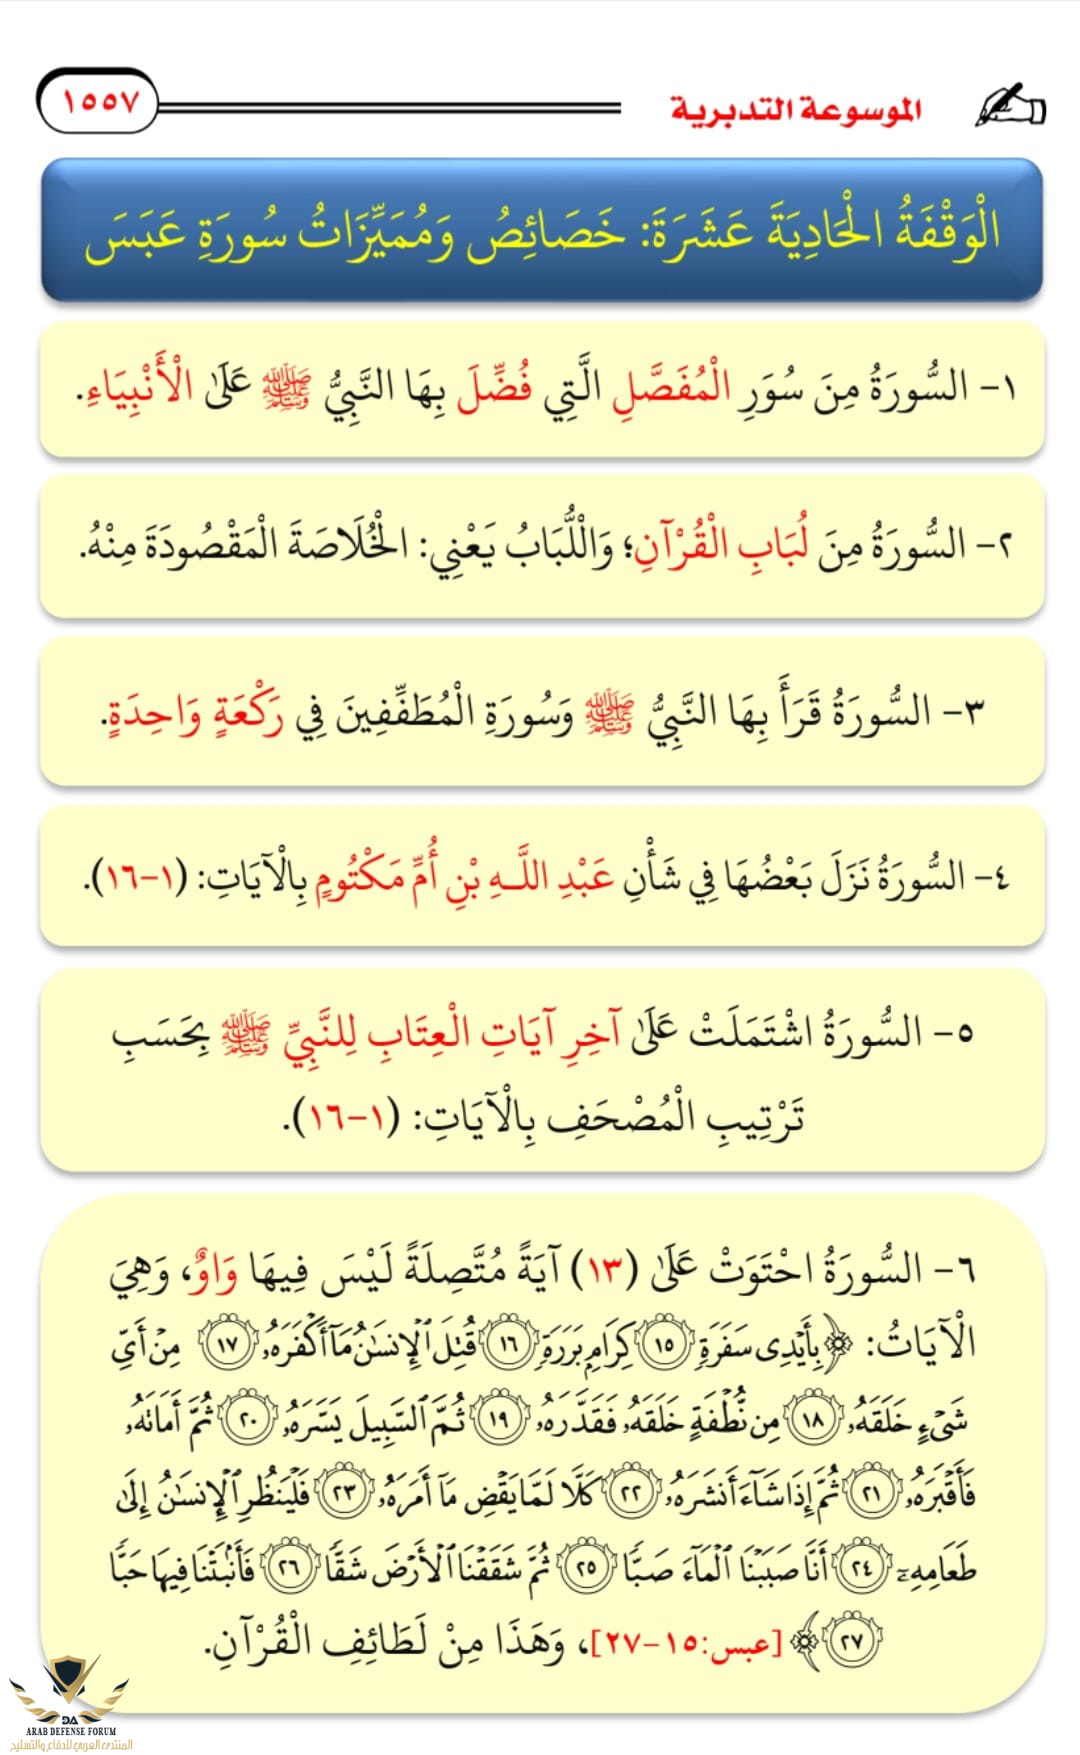 الموسوعة التدبرية
١٥٥٧
الْوَقْفَةُ الْحَادِيَةَ عَشَرَةَ: خَصَائِصُ وَمُمَيِّزَاتُ سُورَةِ عَبَسَ
١- السُّورَةُ مِنَ سُوَرِ الْمُفَصَّلِ الَّتِي فُضِّلَ بِهَا النَّبِيُّ ﷺ عَلَى الْأَنْبِيَاءِ.
٢- السُّورَةُ مِنَ لُبَابِ الْقُرْآنِ؛ وَاللُّبَابُ يَعْنِي: الْخُلَاصَةَ الْمَقْصُودَةَ مِنْهُ.
٣- السُّورَةُ قَرَأَ بِهَا النَّبِيُّ ﷺ وَسُورَةِ الْمُطَفِّفِينَ فِي رَكْعَةٍ وَاحِدَةٍ.
٤- السُّورَةُ نَزَلَ بَعْضُهَا فِي شَأْنِ عَبْدِ اللَّـهِ بْنِ أُمِّ مَكْتُومٍ بِالْآيَاتِ: (١-١٦).
٥- السُّورَةُ اشْتَمَلَتْ عَلَى آخِرِ آيَاتِ الْعِتَابِ لِلنَّبِيِّ ﷺ بِحَسَبِ
تَرْتِيبِ الْمُصْحَفِ بِالْآيَاتِ: (١-١٦).
٦- السُّورَةُ احْتَوَتْ عَلَى (١٣) آيَةً مُتَّصِلَةً لَيْسَ فِيهَا وَاوٌ، وَهِيَ
الْآيَاتُ: ﴿بِأَيْدِى سَفَرَةٍ ١٥ كِرَامٍ بَرَرَةٍ ١٦ قُتِلَ ٱلْإِنسَـٰنُ مَآ أَكْفَرَهُۥ ١٧ مِنْ أَىِّ
شَىْءٍ خَلَقَهُۥ ١٨ مِن نُّطْفَةٍ خَلَقَهُۥ فَقَدَّرَهُۥ ١٩ ثُمَّ ٱلسَّبِيلَ يَسَّرَهُۥ ٢٠ ثُمَّ أَمَاتَهُۥ
فَأَقْبَرَهُۥ ٢١ ثُمَّ إِذَا شَآءَ أَنشَرَهُۥ ٢٢ كَلَّا لَمَّا يَقْضِ مَآ أَمَرَهُۥ ٢٣ فَلْيَنظُرِ ٱلْإِنسَـٰنُ إِلَىٰ
طَعَامِهِۦٓ ٢٤ أَنَّا صَبَبْنَا ٱلْمَآءَ صَبًّا ٢٥ ثُمَّ شَقَقْنَا ٱلْأَرْضَ شَقًّا ٢٦ فَأَنۢبَتْنَا فِيهَا حَبًّا
٢٧﴾ [عبس:١٥-٢٧]، وَهَذَا مِنْ لَطَائِفِ الْقُرْآنِ.
DA
ARAB DEFENSE FORUM
المنتدى العربي للدفاع والتسليح